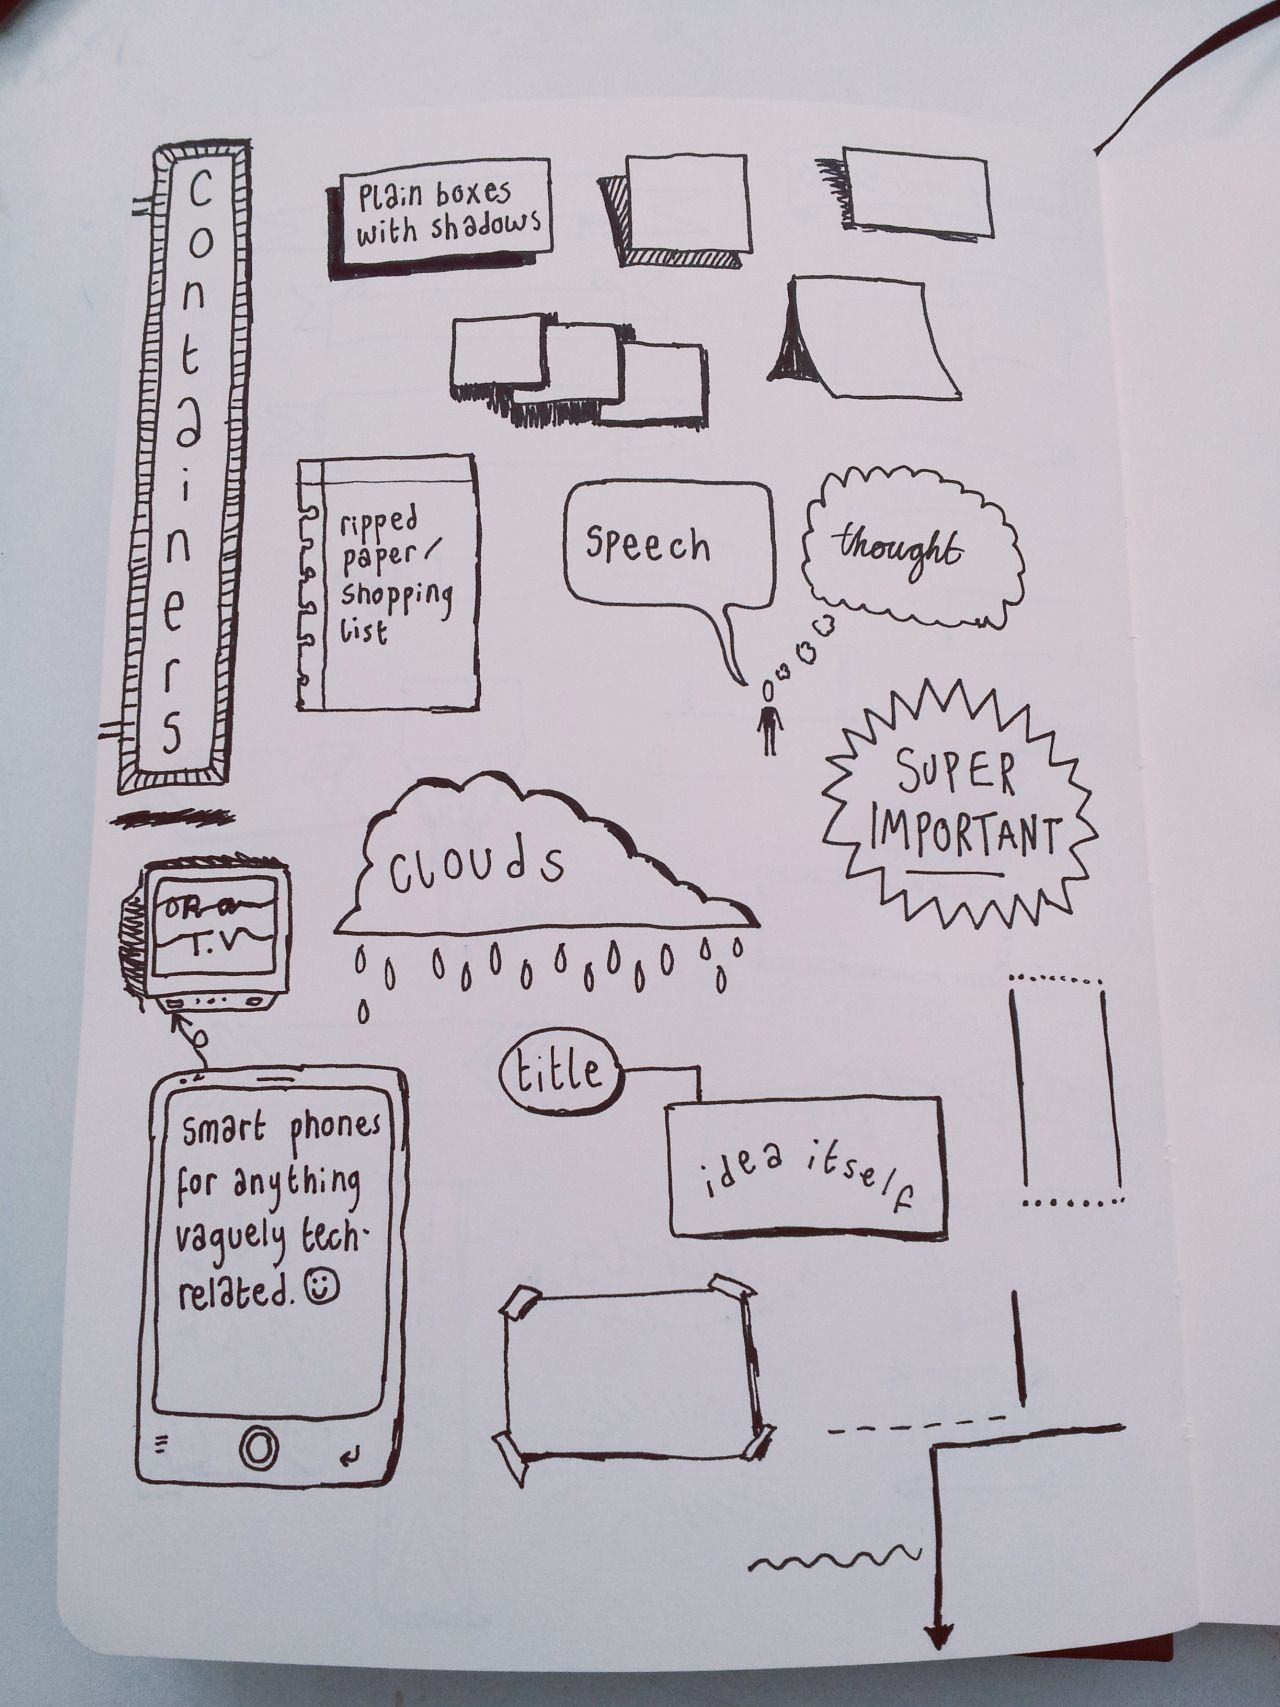 Containers
Plain boxes
with shadows
ripped
paper/
shopping
list
Speech
thought
SUPER
IMPORTANT
CLOUDS
OR a
T.V
title
idea itself
Smart phones
for anything
vaguely tech-
related. ☺